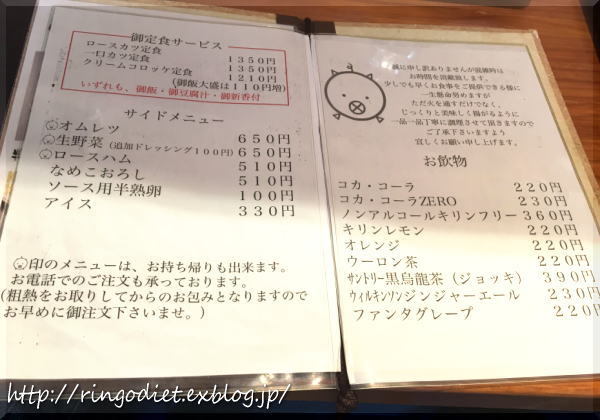 御定食サービス
ロースカツ定食 1350円
一口カツ定食 1350円
クリームコロッケ定食 1210円
(御飯大盛は110円増)
いずれも、御飯・御豆腐汁・御新香付
サイドメニュー
オムレツ 650円
生野菜(追加ドレッシング100円) 650円
ロースハム 510円
なめこおろし 510円
ソース用半熟卵 100円
アイス 330円
印のメニューは、お持ち帰りも出来ます。
お電話でのご注文も承っております。
(粗熱をお取りしてからのお包みとなりますので
お早めに御注文下さいませ。)
誠に申し訳ありませんが混雑時は
お時間を頂戴致します。
少しでも早くお食事をご提供できる様に
一生懸命努めますが
ただ火を通すだけでなく、
じっくりと美味しく揚がるように
一品一品丁寧に調理させて頂きますので
ご了承下さいますよう
宜しくお願い申し上げます。
お飲物
コカ・コーラ 220円
コカ・コーラZERO 230円
ノンアルコールキリンフリー 360円
キリンレモン 220円
オレンジ 220円
ウーロン茶 220円
サントリー黒烏龍茶(ジョッキ) 390円
ウィルキンソンジンジャーエール 230円
ファンタグレープ 220円
http://ringodiet.exblog.jp/